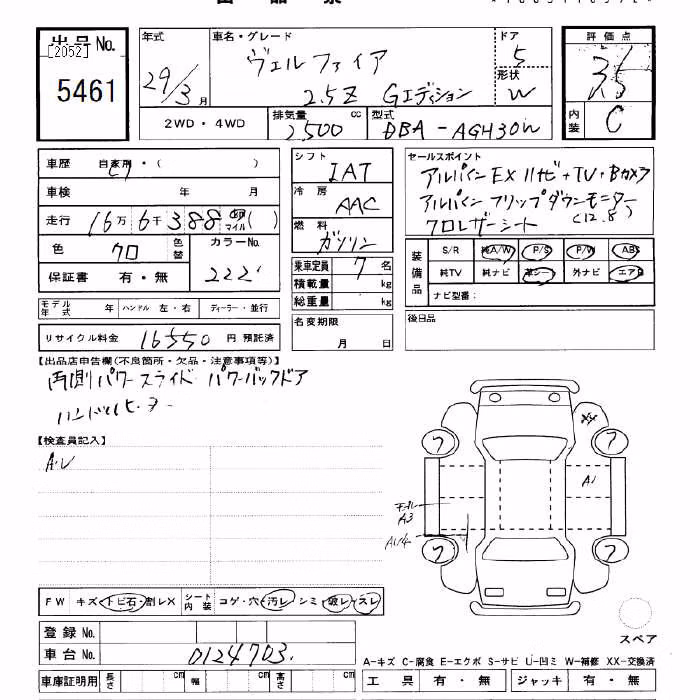 出品No.
[2052]
5461
年式
29/3月
車名・グレード
ヴェルファイア
2.5Z Gエディション
ドア
5
形状
W
評価点
3.5
内装
C
2WD・4WD
排気量
2500 cc
型式
DBA-AGH30W
車歴 自家用・( )
車検 年 月
走行 16万6千388 km マイル ( )
色 クロ 色替
カラーNo. 222
保証書 有・無
モデル年式 年 ハンドル 左・右 ディーラー・並行
リサイクル料金 16550 円 預託済
シフト
IAT
冷房
AAC
燃料
ガソリン
乗車定員 7 名
積載量 kg
総重量 kg
名変期限
月 日
セールスポイント
アルパインEX11ナビ+TV・Bカメラ
アルパインフリップダウンモニター
クロレザーシート
装備品
S/R 純A/W P/S P/W ABS
純TV 純ナビ 革シート 外ナビ エアB
ナビ型番:
後日品
【出品店申告欄(不良箇所・欠品・注意事項等)】
両側パワースライド パワーバックドア
ハンドルヒーター
【検査員記入】
A・U
7
XX
7
A1
A3
7
7
スペア
FW キズ・トビ石・割レX シート内装 コゲ・穴・汚レ・シミ・破レ・スレ
登録No.
車台No. 0124703
車庫証明用 長さ cm 幅 cm 高さ cm
A-キズ C-腐食 E-エクボ S-サビ U-凹ミ W-補修 XX-交換済
工具 有・無 ジャッキ 有・無